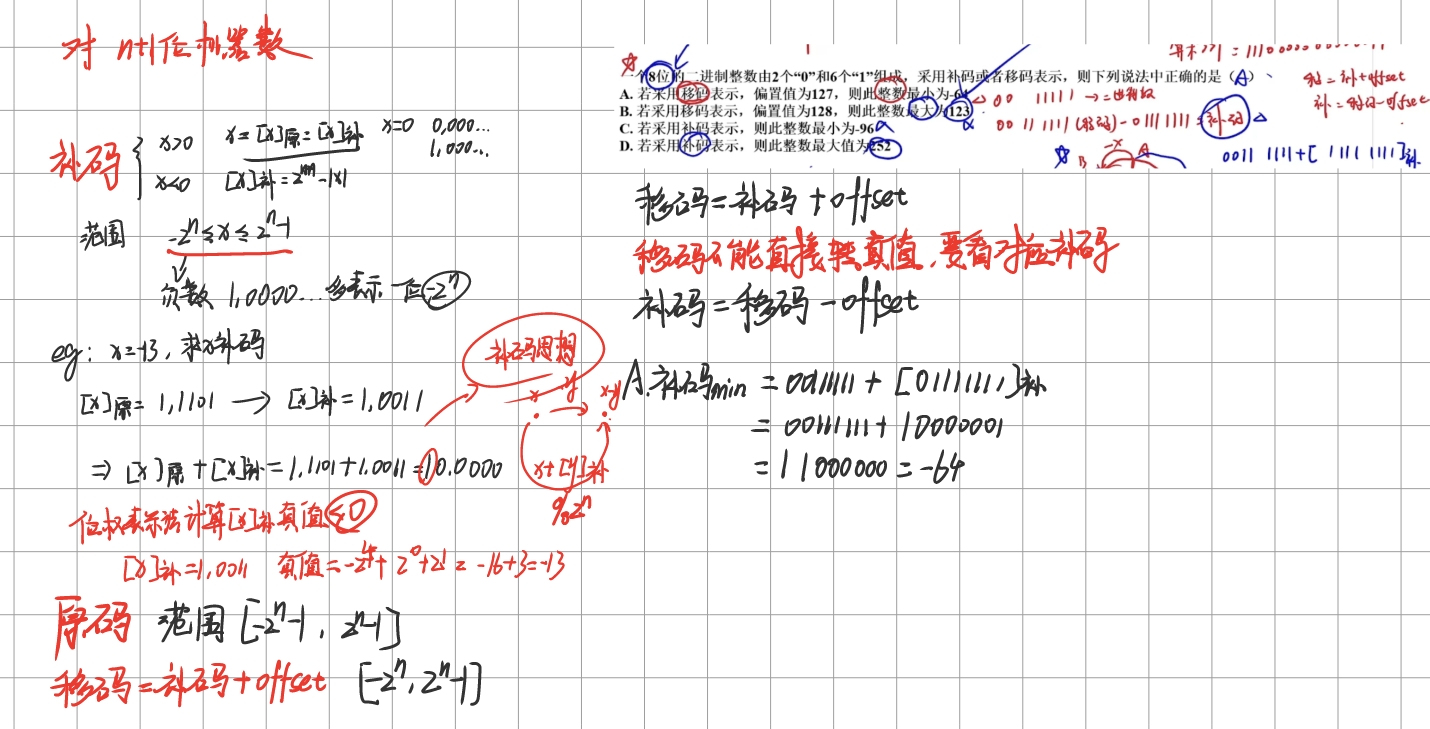 对 n+1位机器数
补码
x>0 x=[x]原=[x]补 x=0 0,000...
1,000...
x<0 [x]补=2ⁿ⁺¹-|x|
范围 -2ⁿ≤x≤2ⁿ-1
负数 1,0000... 多表示一位-2ⁿ
eg: x=-13, 求x补码
[x]原=1,1101 → [x]补=1,0011
⇒ [x]原+[x]补=1,1101+1,0011=10,0000
位权表示法计算[x]补真值≤0
[x]补=1,0011 真值=-2⁴+2⁰+2¹=-16+3=-13
原码 范围[-2ⁿ-1, 2ⁿ-1]
移码=补码+offset [-2ⁿ, 2ⁿ-1]
补码思想
x -y x-y
x+[y]补
%2ⁿ
一个8位的二进制整数由2个“0”和6个“1”组成，采用补码或者移码表示，则下列说法中正确的是（A）、
A. 若采用移码表示，偏置值为127，则此整数最小为-64
B. 若采用移码表示，偏置值为128，则此整数最大为123
C. 若采用补码表示，则此整数最小为-96
D. 若采用补码表示，则此整数最大值为252
移=补+offset
补=移码-offset
00 11111
0011 1111(移码)-0111 1111=补码
0011 1111+[1111 1111]补
-x A
B
移码=补码+offset
移码不能直接转真值,要看对应补码
补码=移码-offset
A.补码min=00111111+[01111111]补
=00111111+10000001
=11000000=-64